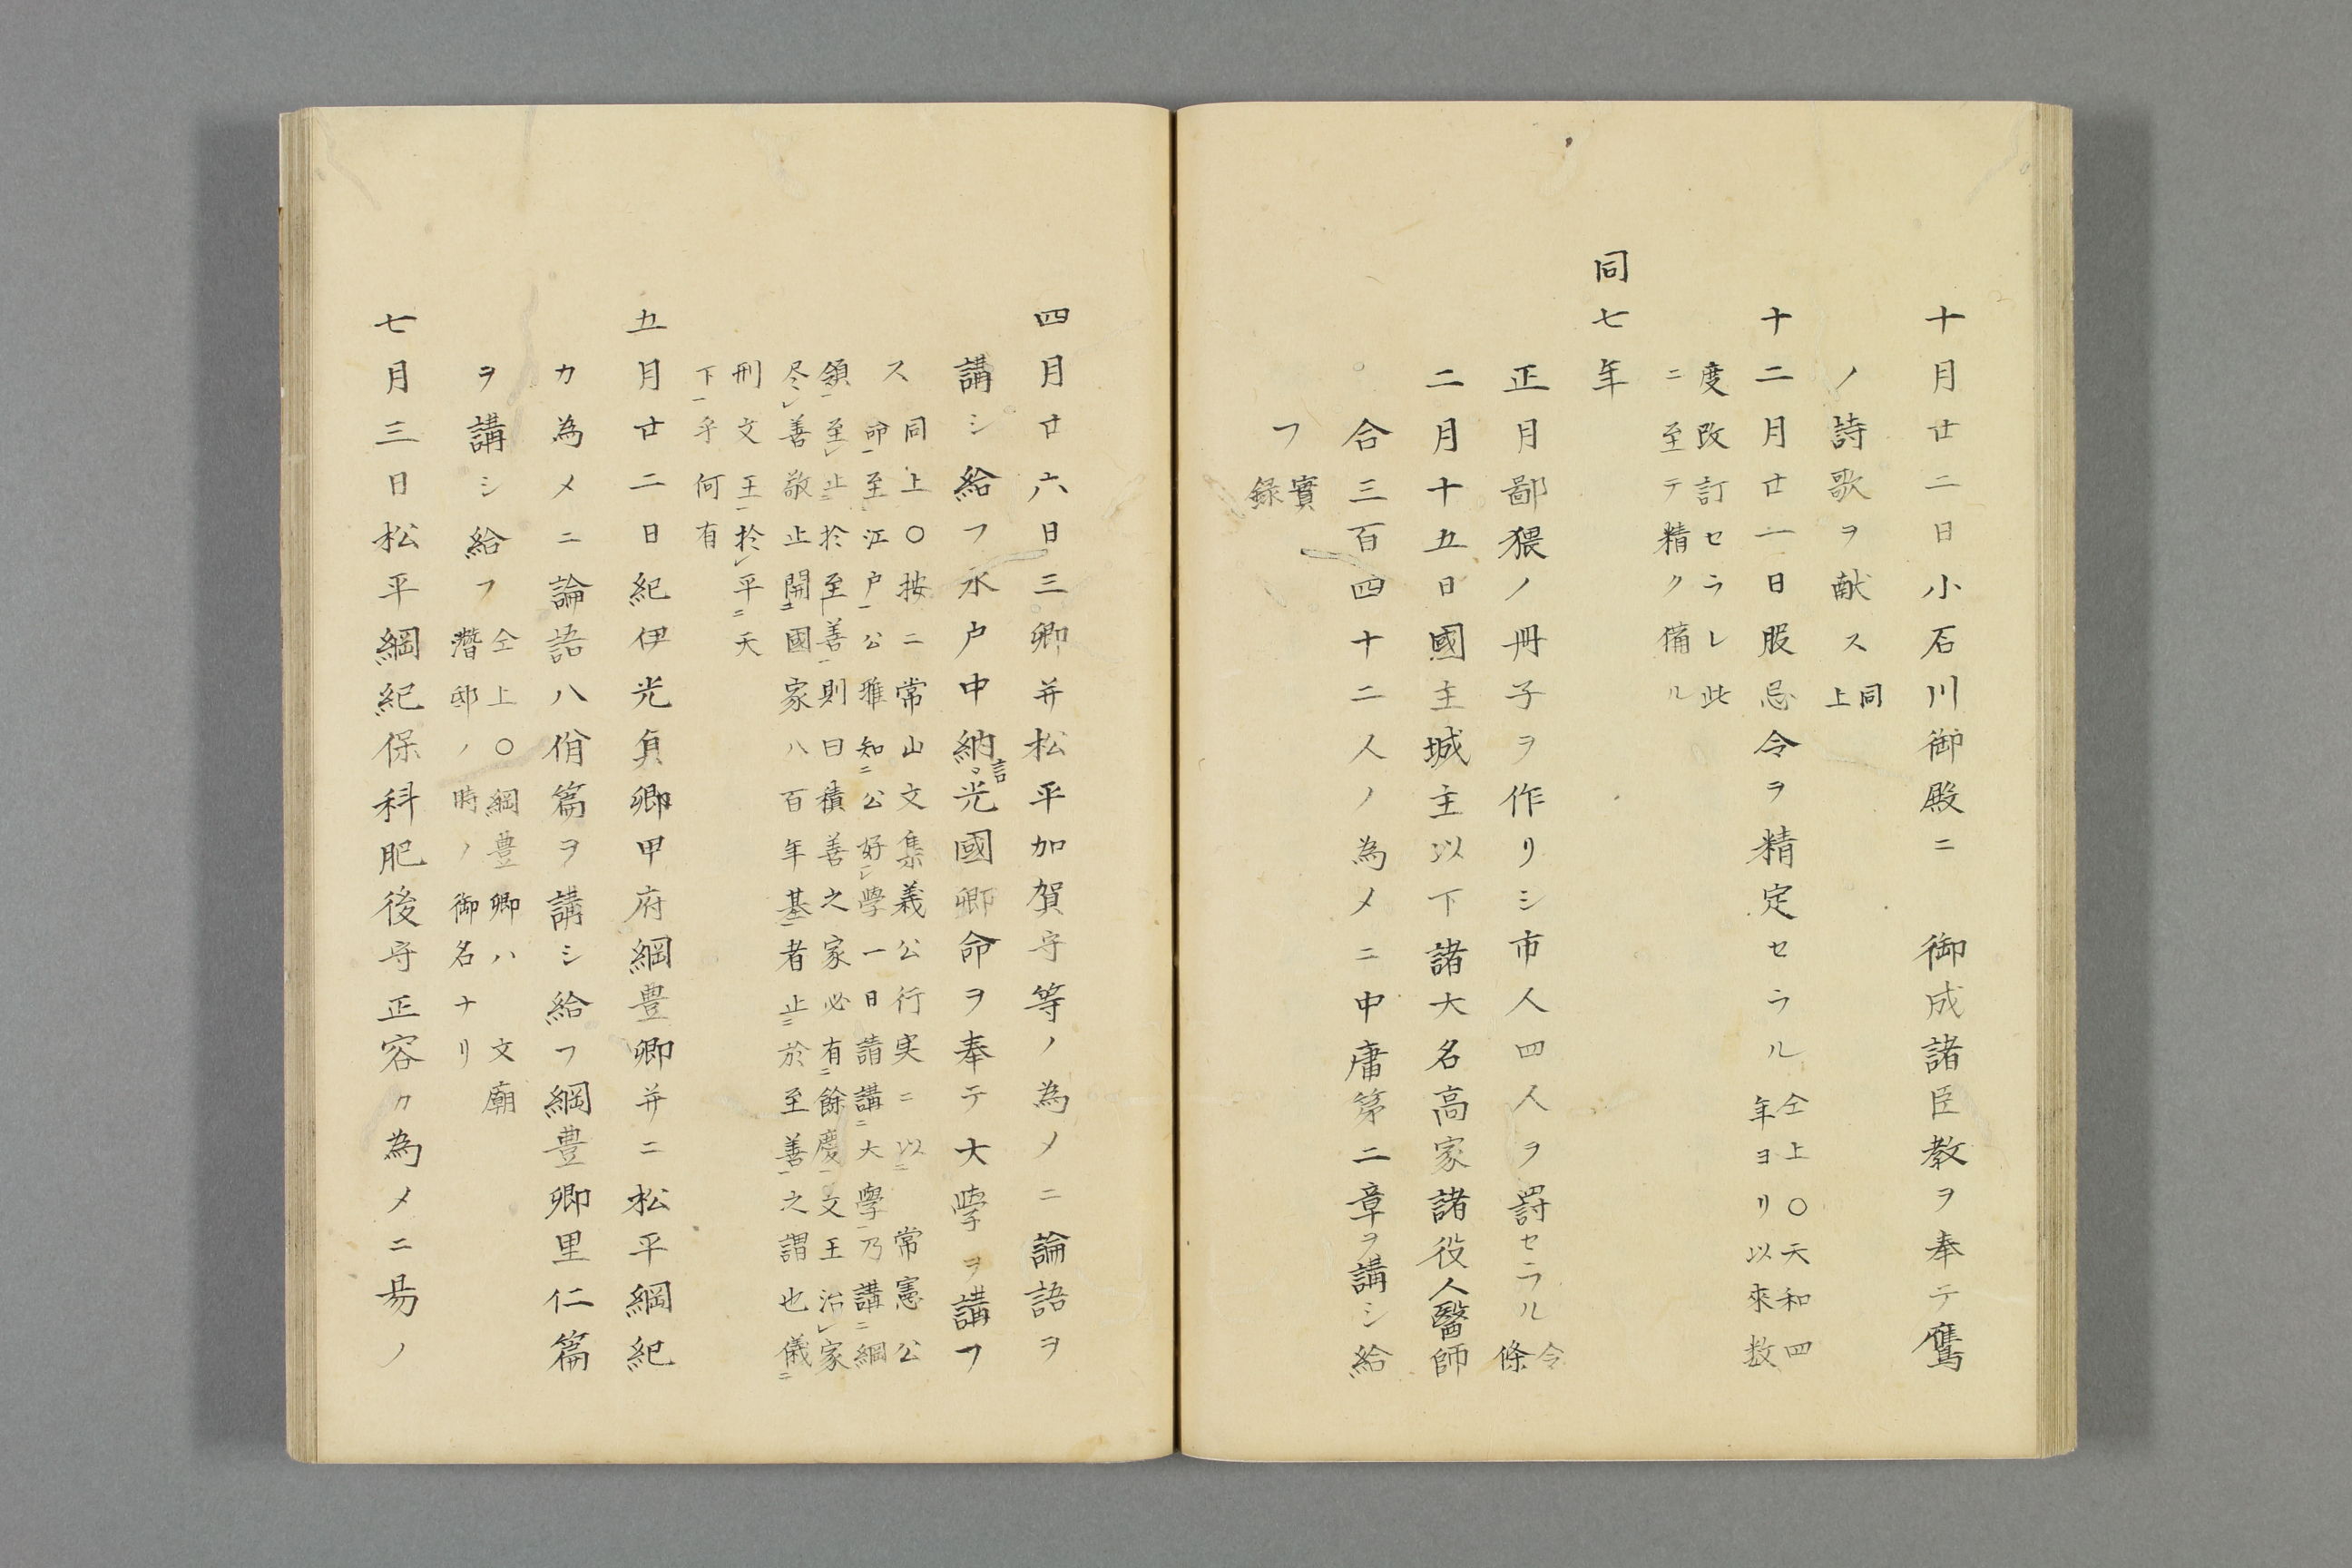 十月廿二日小石川御殿ニ　御成諸臣教ヲ奉テ鷹
ノ詩歌ヲ献ス同上
十二月廿一日服忌令ヲ精定セラル仝上〇天和四
年ヨリ以來数
度改訂セラレ此
ニ至テ精ク備ル
同七年
正月鄙猥ノ冊子ヲ作リシ市人四人ヲ罸セラル令條
二月十五日國主城主以下諸大名高家諸役人醫師
合三百四十二人ノ為メニ中庸第二章ヲ講シ給
フ實録
四月廿六日三卿并松平加賀守等ノ為メニ論語ヲ
講シ給フ水户中納言光國卿命ヲ奉テ大學ヲ講フ
ス同上〇按ニ常山文集義公行実ニ以ニ　常憲公
命一至江户一公雅知ニ公好レ學一日請講ニ大學一乃講ニ綱
領一至レ止ニ於至善一則曰積善之家必有ニ餘慶一文王治レ家
尽レ善敬止開ニ國家八百年基一者止ニ於至善一之謂也儀ニ
刑文王一於レ平ニ天
下一乎何有
五月廿二日紀伊光貞卿甲府綱豊卿并ニ松平綱紀
カ為メニ論語八佾篇ヲ講シ給フ綱豊卿里仁篇
ヲ講シ給フ仝上〇綱豊卿ハ　文廟
潛邸ノ時ノ御名ナリ
七月三日松平綱紀保科肥後守正容カ為メニ易ノ